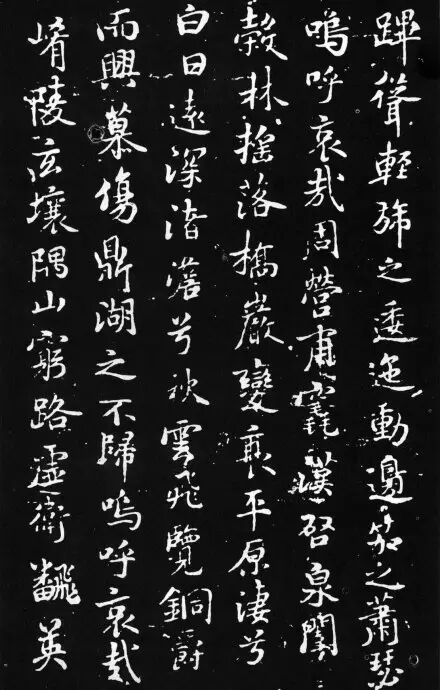 蹕聳輕旆之逶迤動邊笳之蕭瑟
嗚呼哀哉周營甫竁漢啓泉闈
穀林摇落橋巖變衰平原淒兮
白日遠深渚澹兮秋雲飛覽銅爵
而興慕傷鼎湖之不歸嗚呼哀哉
崤陵玄壤隅山窮路虛衛飜英